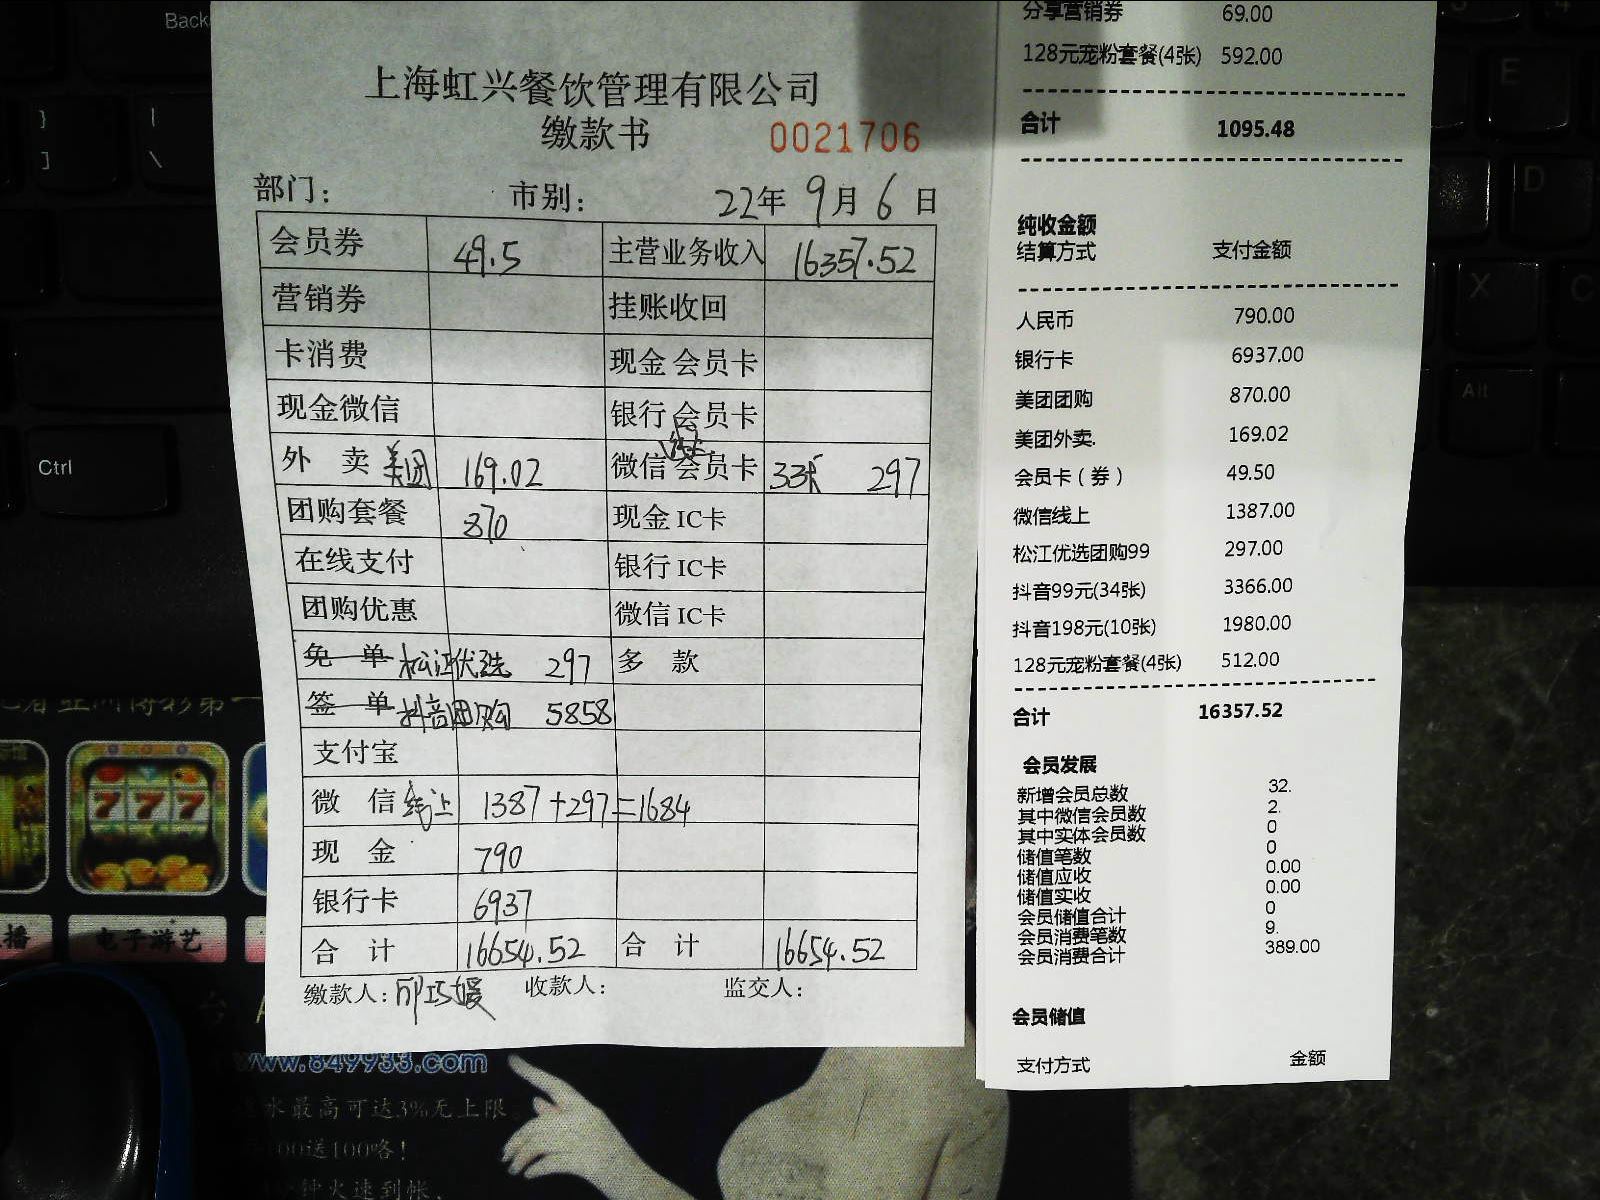 Back
}
]
|
\
Ctrl
E
D
X
C
Alt
上海虹兴餐饮管理有限公司
缴款书 0021706
部门： 市别： 22年 9月 6日
会员券 49.5 主营业务收入 16357.52
营销券 挂账收回
卡消费 现金 会员卡
现金微信 银行 会员卡
外 卖 美团 169.02 微信 线上 会员卡 33张 297
团购套餐 870 现金 IC卡
在线支付 银行 IC卡
团购优惠 微信 IC卡
免 单 松江优选 297 多 款
签 单 抖音团购 5858
支付宝
微 信 线上 1387+297=1684
现 金 790
银行卡 6937
合 计 16654.52 合 计 16654.52
缴款人： 收款人： 监交人：
分享营销券 69.00
128元宠粉套餐(4张) 592.00
合计 1095.48
纯收金额
结算方式 支付金额
人民币 790.00
银行卡 6937.00
美团团购 870.00
美团外卖. 169.02
会员卡（券） 49.50
微信线上 1387.00
松江优选团购99 297.00
抖音99元(34张) 3366.00
抖音198元(10张) 1980.00
128元宠粉套餐(4张) 512.00
合计 16357.52
会员发展
新增会员总数 32.
其中微信会员数 2.
其中实体会员数 0
储值笔数 0
储值应收 0.00
储值实收 0.00
会员储值合计 0
会员消费笔数 9.
会员消费合计 389.00
会员储值
支付方式 金额
777
播
电子游艺
www.849933.com
水最高可达3%无上限
100送100咯!
钟火速到帐,